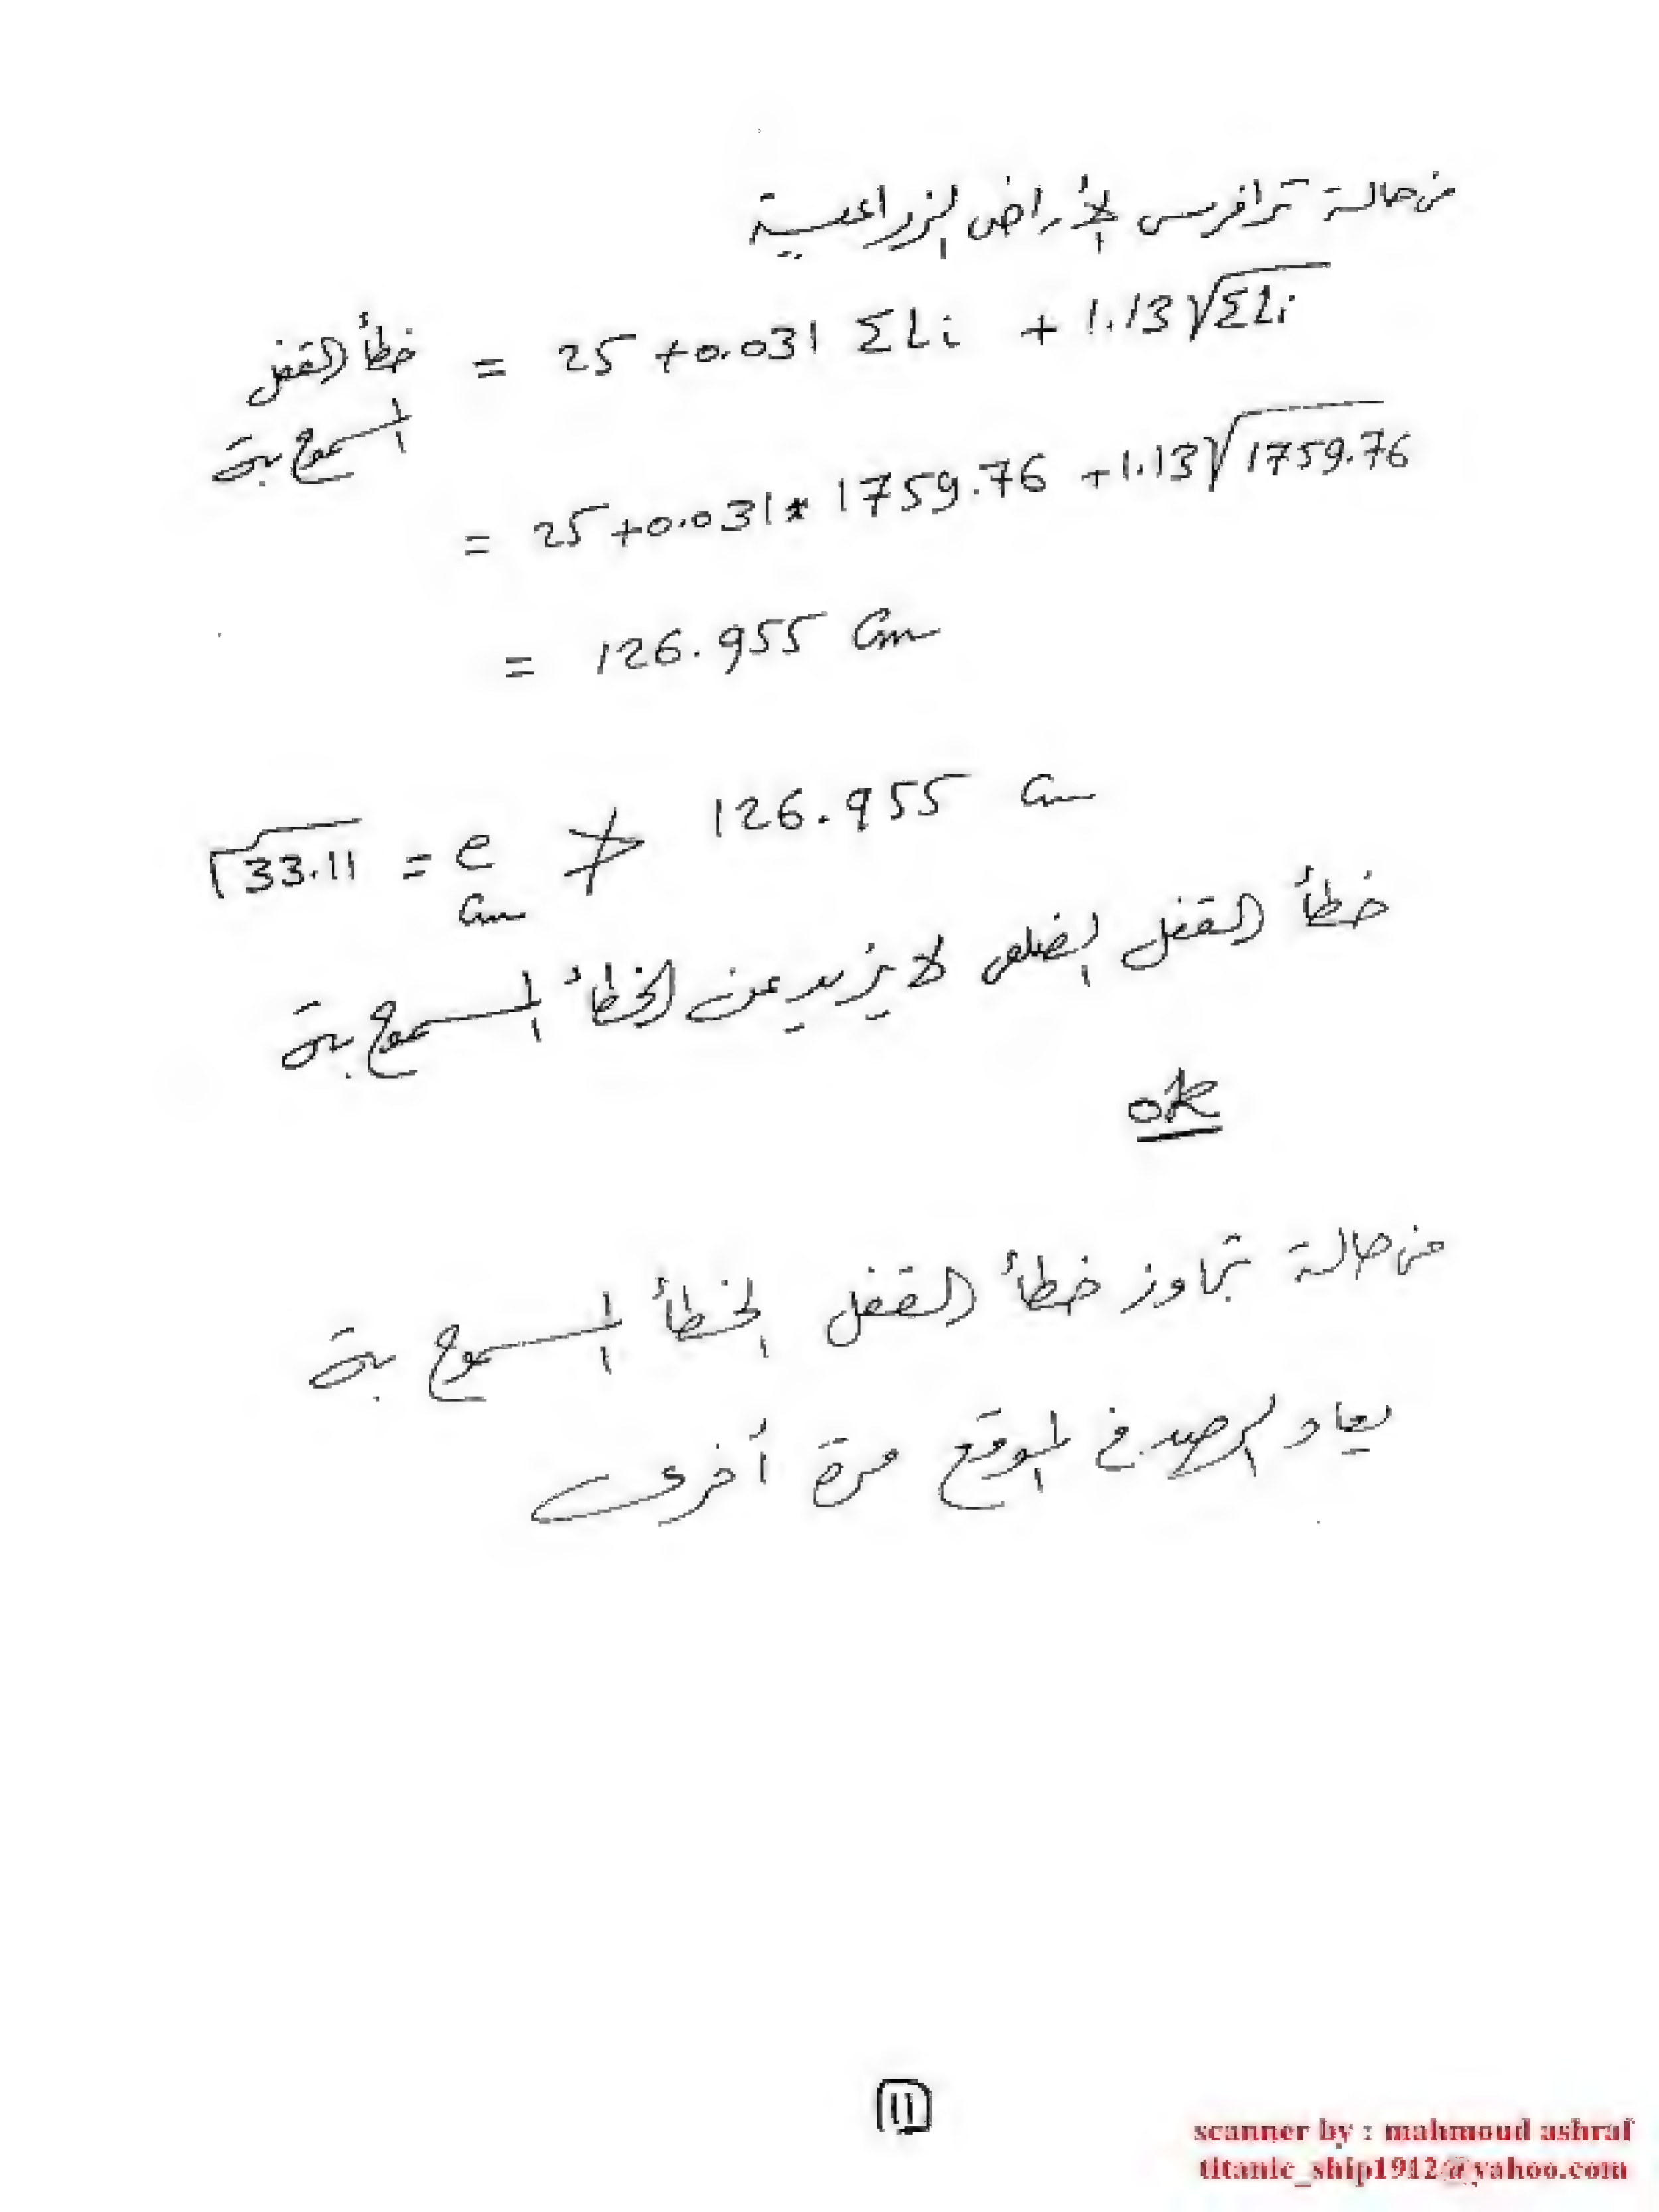 فى حالة ترافرس الأراضى الزراعية
خطأ القفل = 25 + 0.031 ΣLi + 1.13 √ΣLi
المسموح به
= 25 + 0.031 * 1759.76 + 1.13 √1759.76
= 126.955 cm
√33.11 = e ≯ 126.955 cm
cm
خطأ القفل الضلعى لا يزيد عن الخطأ المسموح به
ok
فى حالة تجاوز خطأ القفل الخطأ المسموح به
يعاد الرصد فى الموقع مرة أخرى
11
scanner by : mahmoud ashraf
titanic_ship1912@yahoo.com